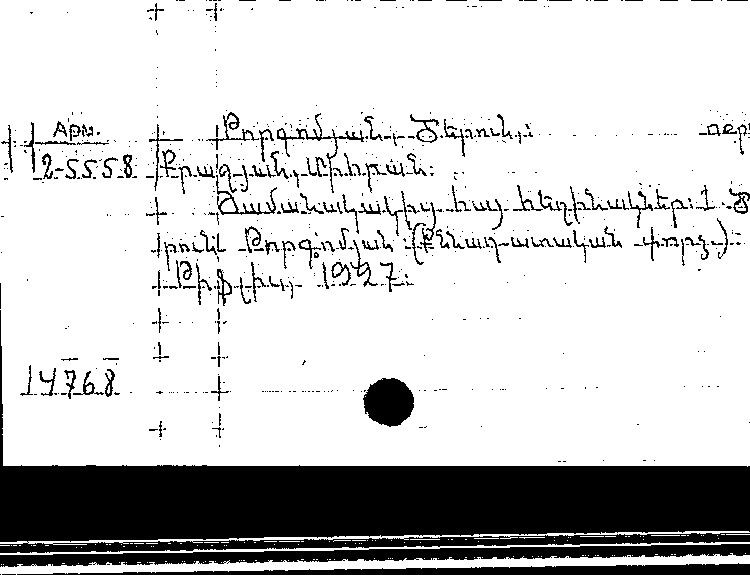 Арм.
2-5558
Թորգոմյան, Ծերուն,։
Քրազյան, Միհրան։
Ժամանակակից հայ հեղինակներ։ 1. Ծե
րունկ Թորգոմյան։ (Քննադատական փորձ)։
Թիֆլիս, 1927։
14768